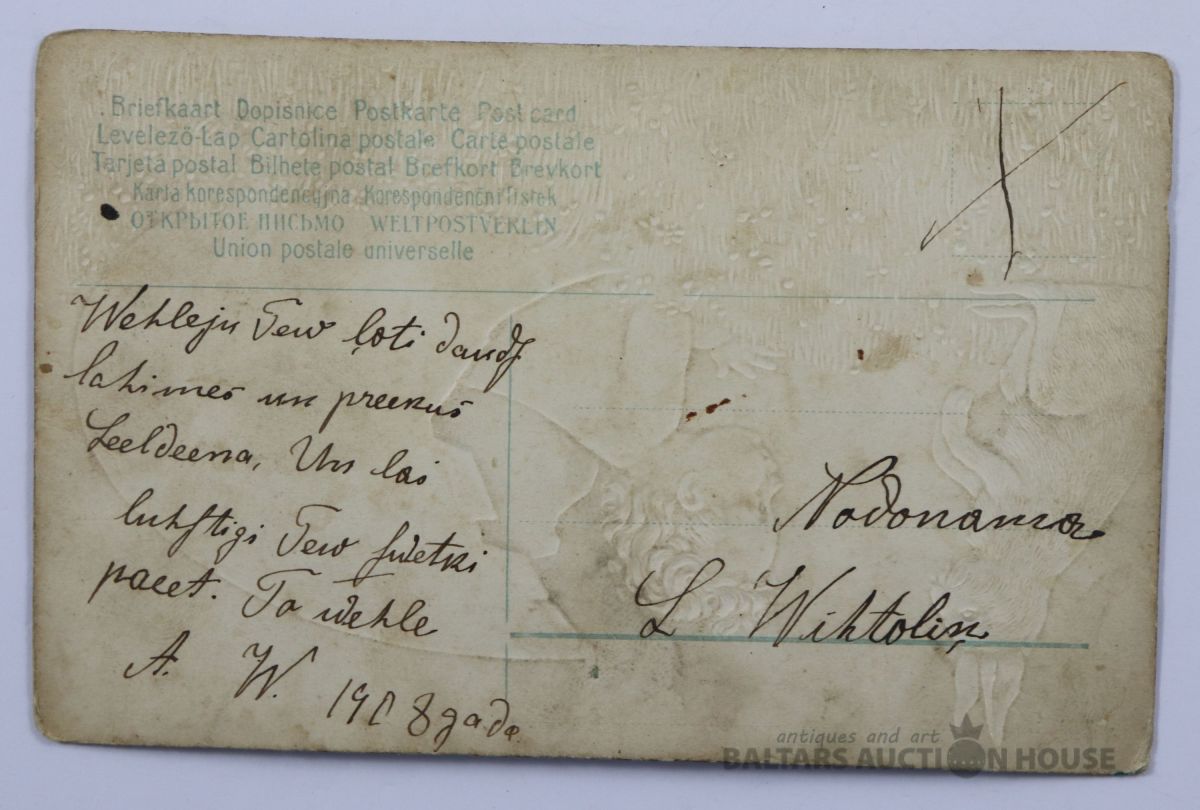 Briefkaart Dopisnice Postkarte Post card
Levelező-Lap Cartolina postale Carte postale
Tarjeta postal Bilhete postal Brefkort Brevkort
Karta korespondencyjna Korespondenční lístek
ОТКРЫТОЕ ПИСЬМО WELTPOSTVEREIN
Union postale universelle
Wehleju Tew ļoti daudz
lahimes un preekus
Leeldeena, Un lai
luhstigi Tew swetki
paeet. To wehle
A. W. 1908 gada
Nodonama
L Wihtoliņ
antiques and art
BALTARS AUCTION HOUSE